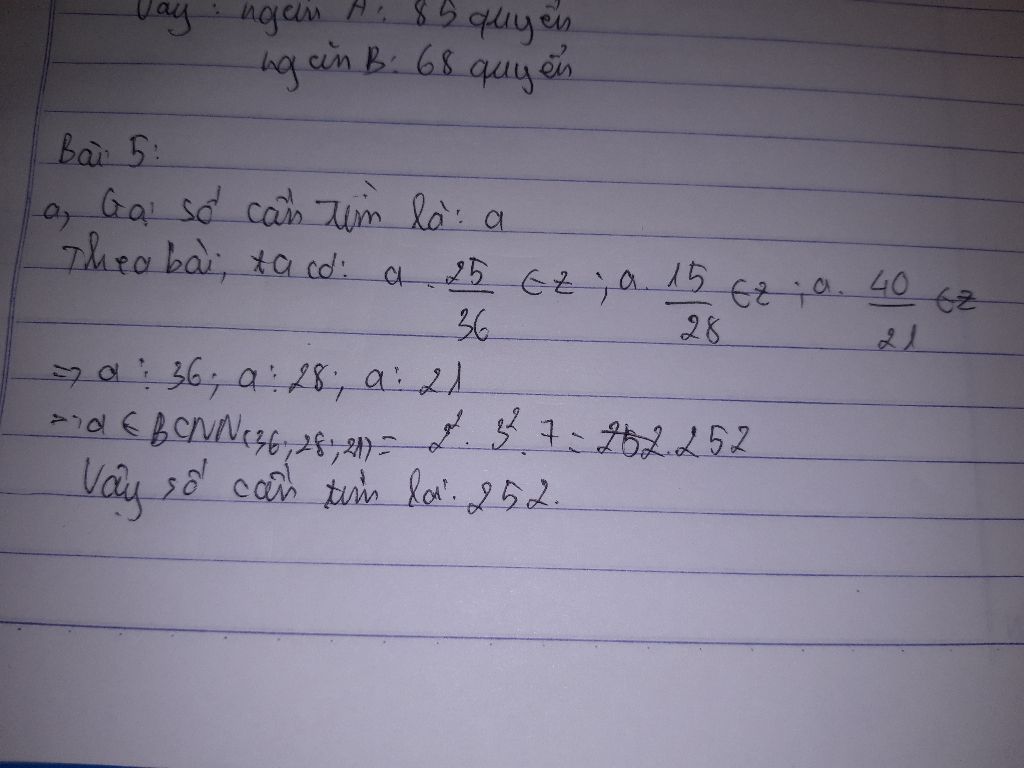 Vậy: ngăn A: 85 quyển
ngăn B: 68 quyển
Bài 5:
a, Gọi số cần tìm là: a
Theo bài, ta có: a . 25/36 ∈ Z ; a . 15/28 ∈ Z ; a . 40/21 ∈ Z
=> a ⋮ 36; a ⋮ 28; a ⋮ 21
=> a ∈ BCNN(36; 28; 21) = 2². 3². 7 = 252
Vậy số cần tìm là: 252.